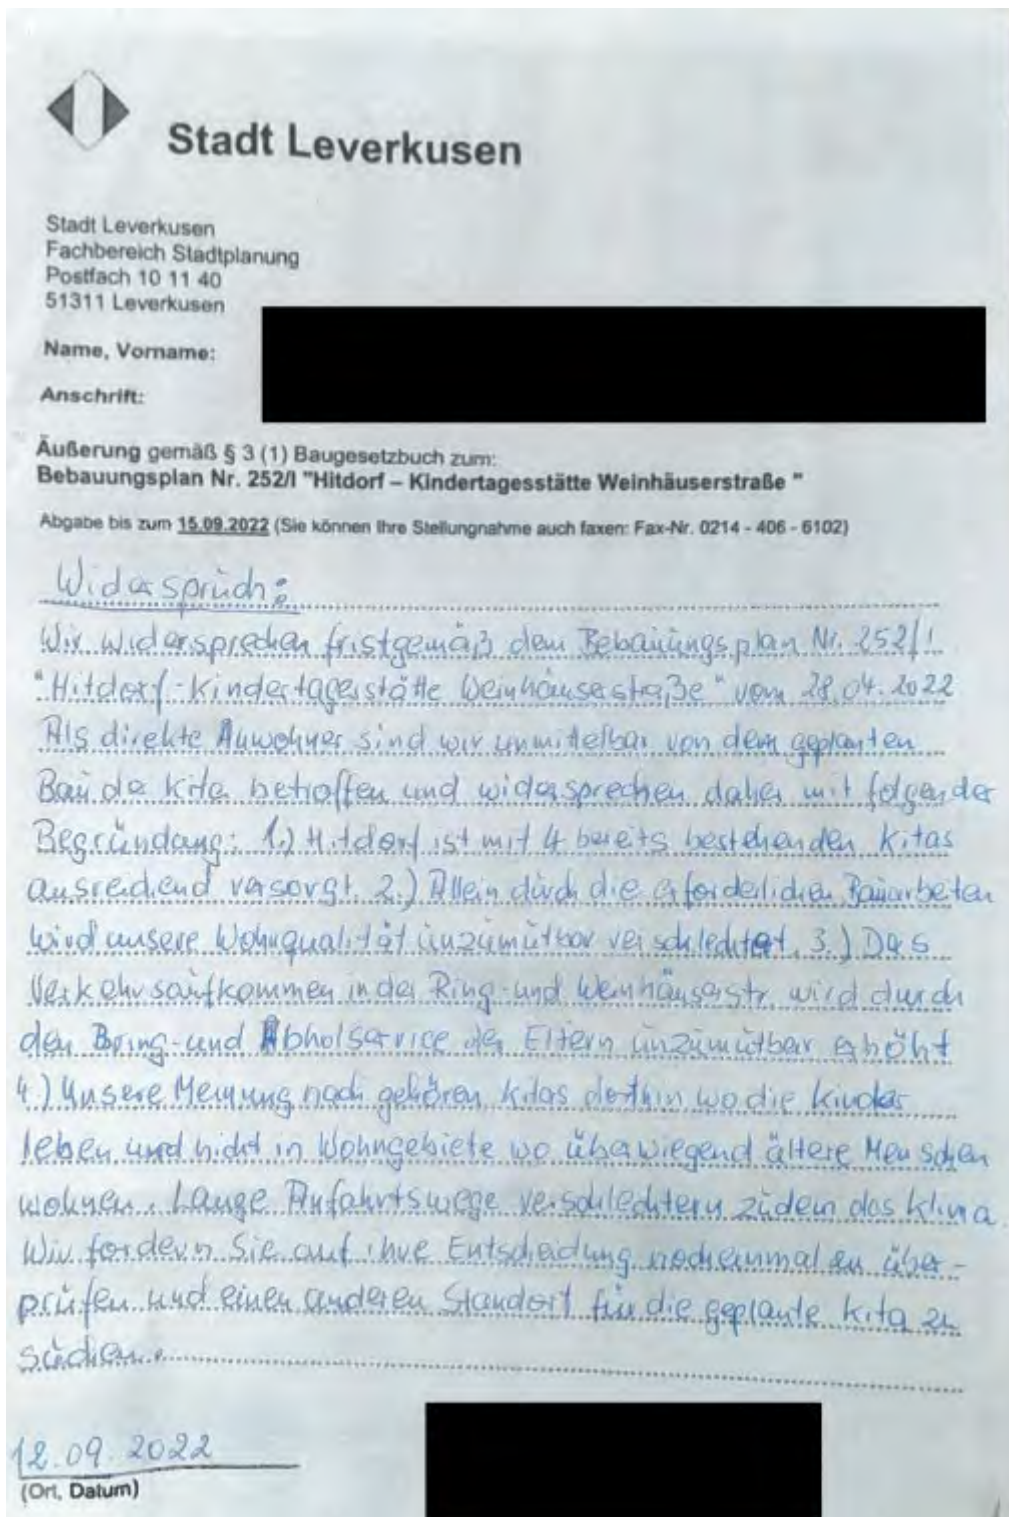 Stadt Leverkusen
Stadt Leverkusen
Fachbereich Stadtplanung
Postfach 10 11 40
51311 Leverkusen
Name, Vorname:
Anschrift:
Äußerung gemäß § 3 (1) Baugesetzbuch zum:
Bebauungsplan Nr. 252/I "Hitdorf – Kindertagesstätte Weinhäuserstraße "
Abgabe bis zum 15.09.2022 (Sie können Ihre Stellungnahme auch faxen: Fax-Nr. 0214 - 406 - 6102)
Widerspruch:
Wir widersprechen fristgemäß dem Bebauungsplan Nr. 252/I.
"Hitdorf-Kindertagesstätte Weinhäuserstraße" vom 28.04.2022
Als direkte Anwohner sind wir unmittelbar von dem geplanten
Bau der Kita betroffen und widersprechen daher mit folgender
Begründung: 1.) Hitdorf ist mit 4 bereits bestehenden Kitas
ausreichend versorgt. 2.) Allein durch die erforderlichen Bauarbeiten
wird unsere Wohnqualität unzumutbar verschlechtert. 3.) Das
Verkehrsaufkommen in der Ring- und Weinhäuserstr. wird durch
den Bring- und Abholservice der Eltern unzumutbar erhöht
4.) Unsere Meinung nach gehören Kitas dorthin wo die Kinder
leben und nicht in Wohngebiete wo überwiegend ältere Menschen
wohnen. Lange Anfahrtswege verschlechtern zudem das Klima.
Wir fordern Sie auf ihre Entscheidung nocheinmal zu über-
prüfen und einen anderen Standort für die geplante Kita zu
suchen.
12.09.2022
(Ort, Datum)